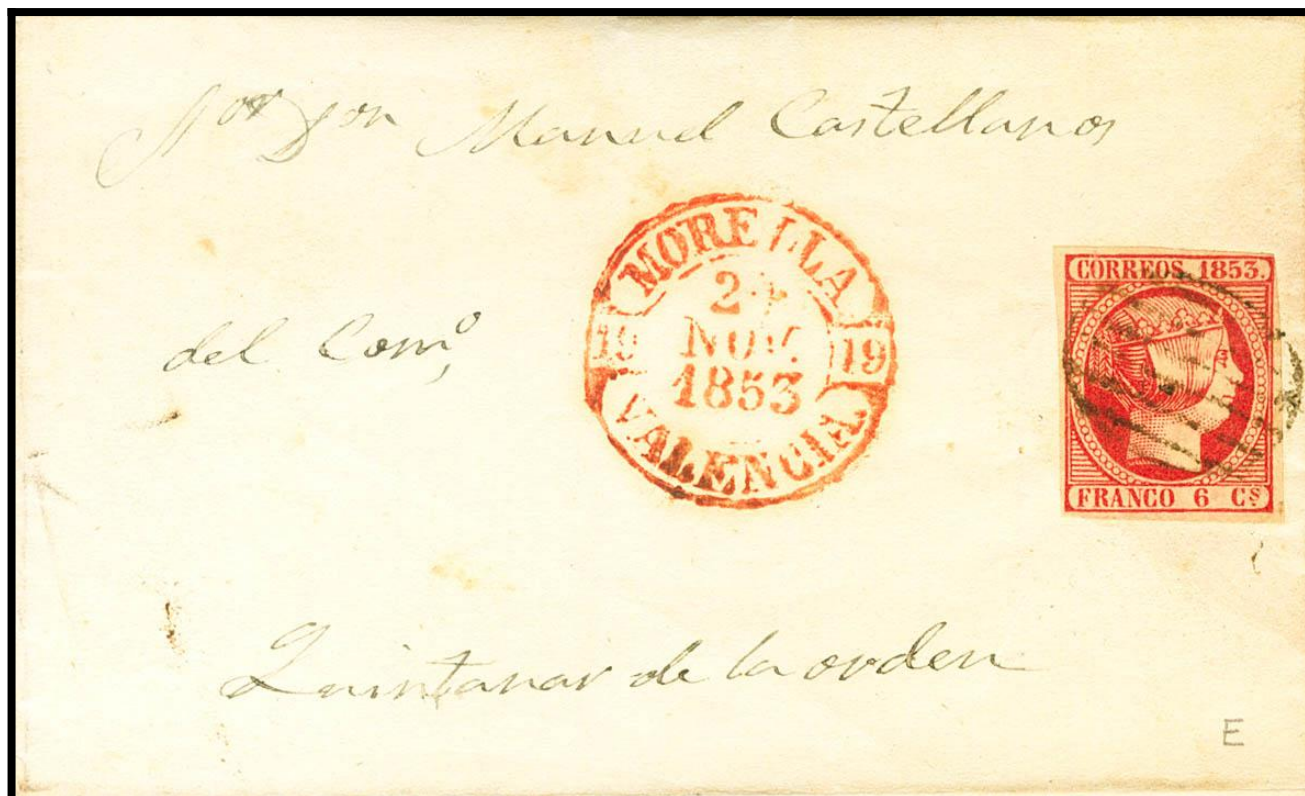 Sor Don Manuel Castellanos
MORELLA
24
NOV.
1853
19
19
VALENCIA
CORREOS. 1853.
FRANCO 6 Cs
del Como,
Quintanar de la orden
E